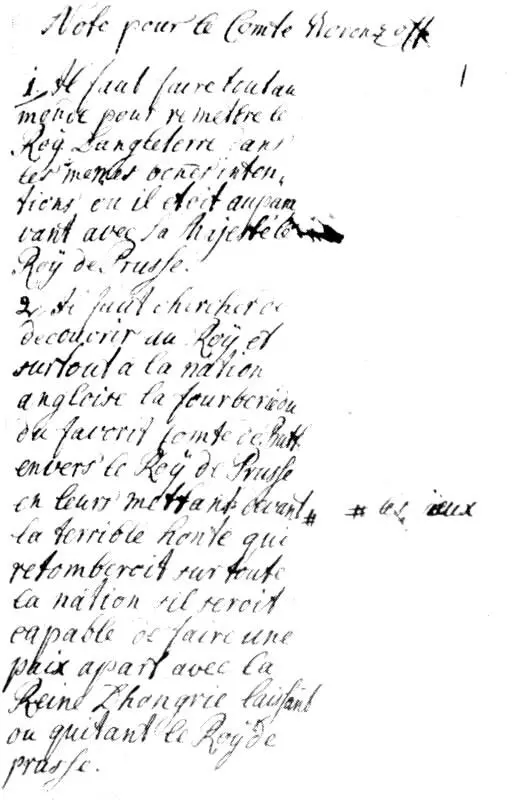 Note pour le Comte Woronzoff
1
1. Il faut faire tout au
monde pour remettre le
Roÿ Dangleterre dans
les memes bones inten,
tions ou il etoit aupara
vant avec Sa Majesté le
Roÿ de Prusse.
2. Il faut chercher de
decouvrir au Roÿ et
surtout a la nation
angloise la fourberie
du favorit Comte de Butt
envers le Roÿ de Prusse
en leurs mettant devant # # les ieux
la terrible honte qui
retomberoit sur toute
la nation sil seroit
capable de faire une
paix apart avec la
Reine D'hongrie laissant
ou quitant le Roÿ de
prusse.